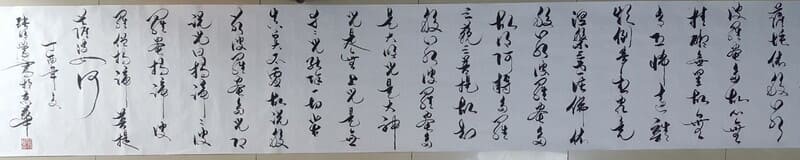 薩埵依般若
波羅蜜多故心無
挂礙無罣故無
有恐怖遠離
顛倒夢想究竟
涅槃三世諸佛依
般若波羅蜜多
故得阿耨多羅
三藐三菩提故知
般若波羅蜜多
是大明咒是大神
咒是無上咒是無
等等咒能除一切苦
真實不虛故說般
若波羅蜜多咒即
說咒曰揭諦揭諦波
羅揭諦波
羅僧揭諦菩提
薩婆訶
丁酉年冬